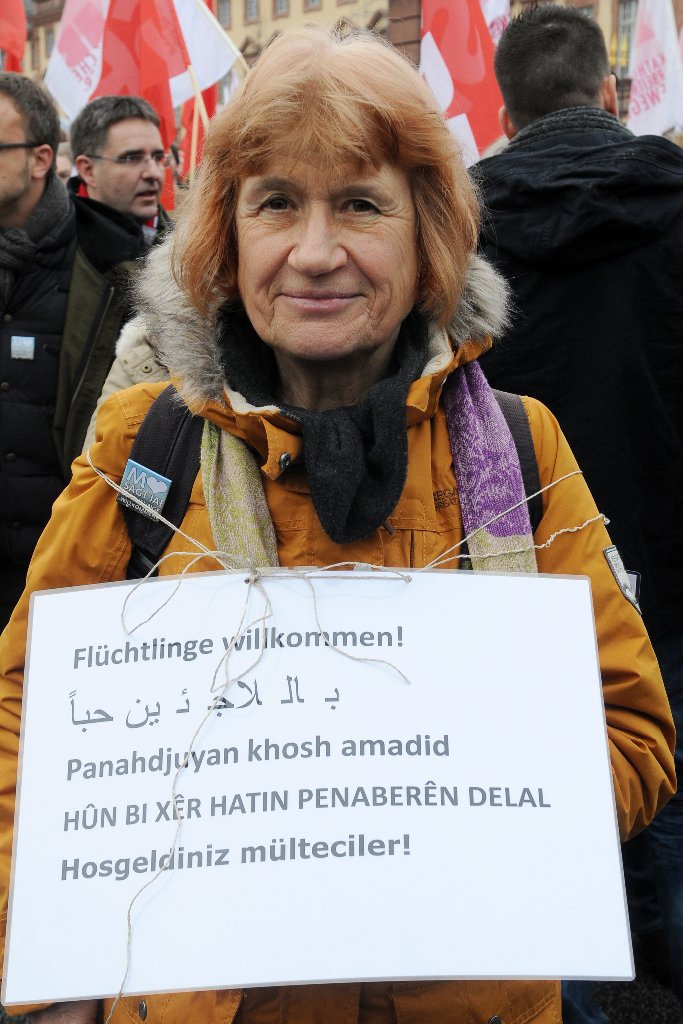 Flüchtlinge willkommen!
بـ الـ للاجـ ئـ ين حباً
Panahdjuyan khosh amadid
HÛN BI XÊR HATIN PENABERÊN DELAL
Hosgeldiniz mülteciler!
M
SAGT JA!